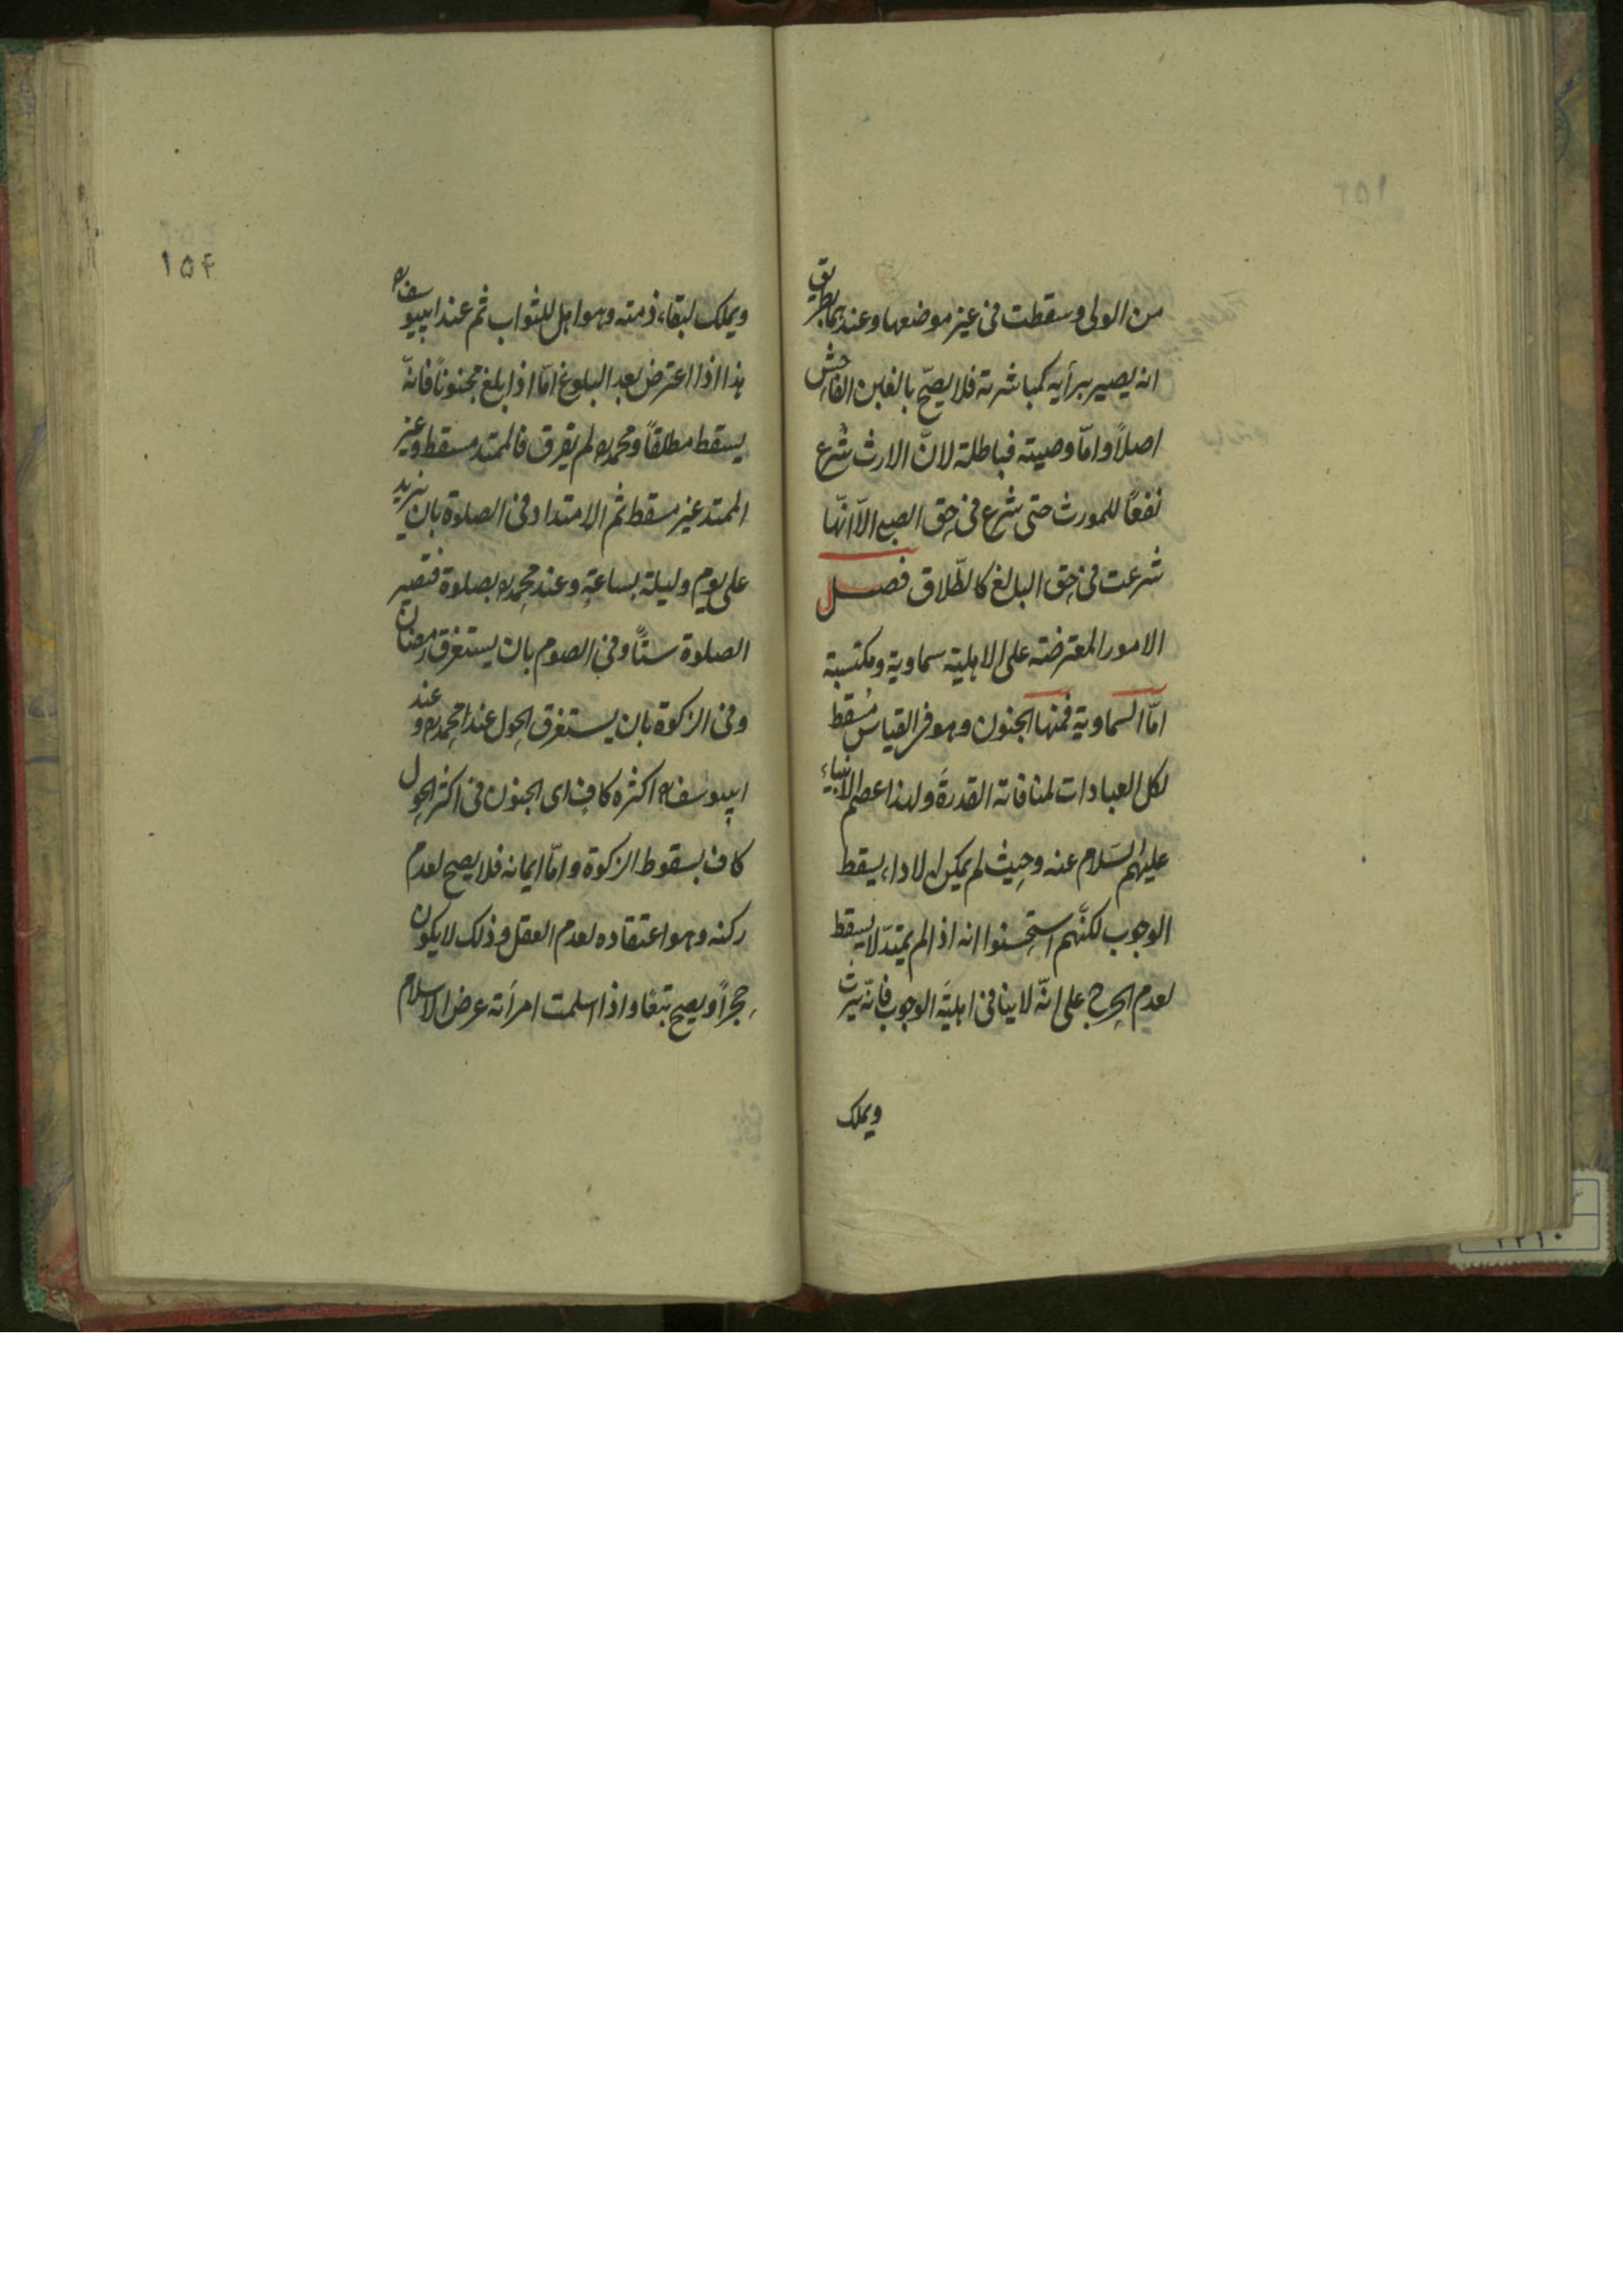 من الولى وسقطت فى غير موضعها وعندهما بطريق
انه يصير برأيه كمباشرته فلا يصحّ بالغبن الفاحش
اصلاً وامّا وصيته فباطلة لانّ الارث شُرع
نفعًا للمورث حتى شرع فى حق الصبى الّا انّها
شرعت فى حق البالغ كالطّلاق فصل
الامور المعترضة على الاهلية سماوية ومكتسبة
امّا السماوية فمنها الجنون وهو فى القياس مُسقط
لكل العبادات لمنافاته القدرة ولهذا عصم الانبياء
عليهم السّلام عنه وحيث لم يمكن الاداء يسقط
الوجوب لكنّهم استحسنوا انه اذا لم يمتدّ لا يسقط
لعدم الحرج على انّه لا ينافى اهليّة الوجوب فانّه يرث
ويملك
١٥٤
ويملك لبقاء ذمته وهو اهل للثواب ثم عند ابييوسف ره
هذا اذا اعترض بعد البلوغ امّا اذا بلغ مجنونًا فانّه
يسقط مطلقًا ومحمد ره لم يفرق فالممتد مسقط وغير
الممتد غير مسقط ثم الامتداد فى الصلوة بان يزيد
على يوم وليلة بساعةٍ وعند محمد ره بصلوة فتصير
الصلوة ستًّا وفى الصوم بان يستغرق رمضان
وفى الزكوة بان يستغرق الحول عند محمد ره وعند
ابييوسف ره اكثره كاف اى الجنون فى اكثر الحول
كاف بسقوط الزكوة وامّا ايمانه فلا يصح لعدم
ركنه وهو اعتقاده لعدم العقل وذلك لا يكون
حجرًا ويصح تبعًا واذا اسلمت امرأته عرض الاسلام